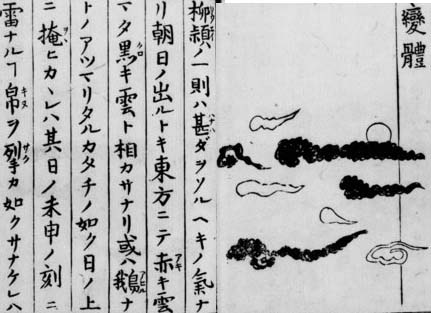 變體
柳頴ハ一則ハ甚ダヲソルヘキノ氣ナ
リ朝日ノ出ルトキ東方ニテ赤キ雲
マタ黒キ雲ト相カサナリ或ハ鵝ナ
トノアツマリタルカタチノ如ク日ノ上
ニ掩ヒカヽレハ其日ノ未申ノ刻ニ
雷ナルヿ帛ヲ挐カ如クサナケレハ